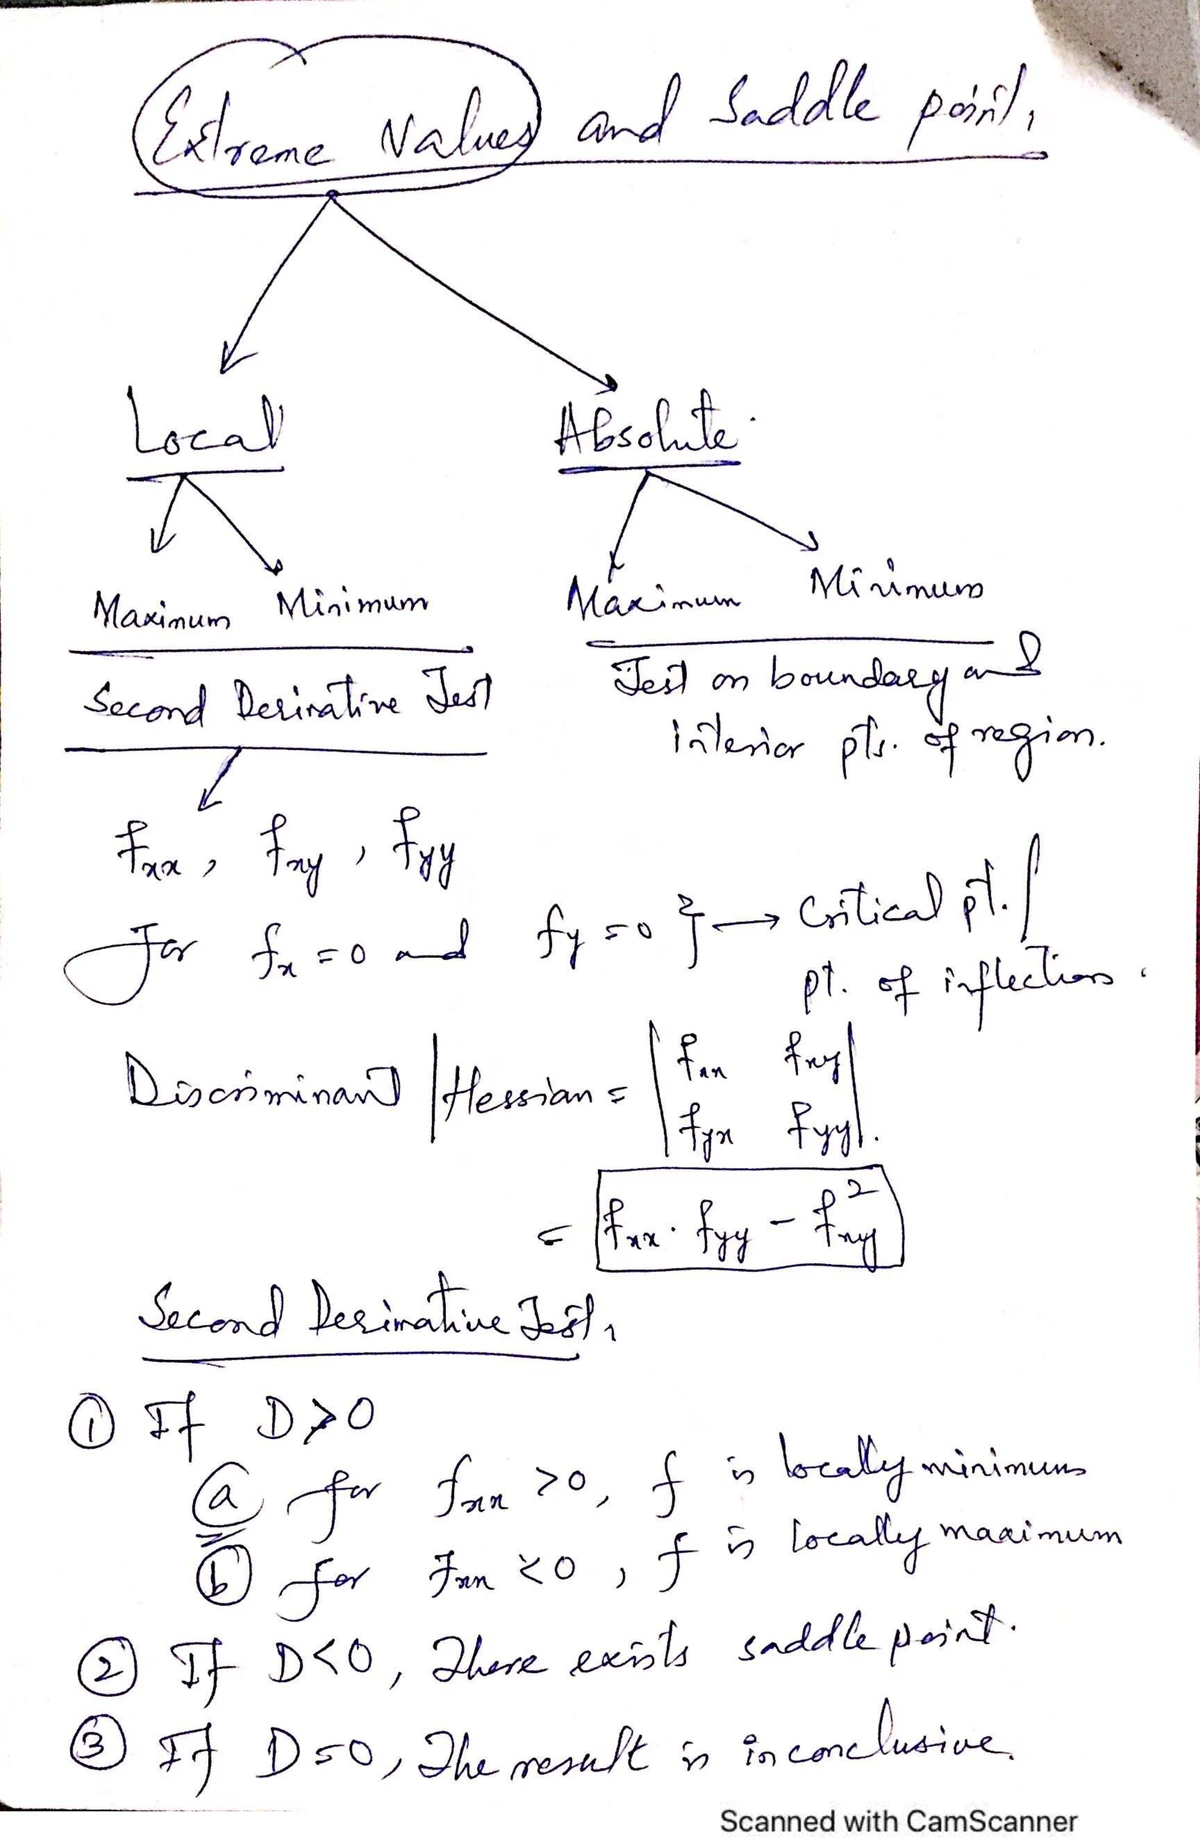 Extreme Values and Saddle point,
Local Absolute.
Maximum Minimum Maximum Minimum
Second Derivative Test Test on boundary and
interior pts. of region.
fxx, fxy, fyy
For fx = 0 and fy = 0 } → Critical pt. /
pt. of inflection.
Discriminant / Hessian = | fxx fxy |
| fyx fyy |.
= fxx · fyy - fxy²
Second Derivative Test,
① If D > 0
ⓐ for fxx > 0, f is locally minimum
ⓑ for fxx < 0, f is locally maximum
② If D < 0, There exists saddle point.
③ If D = 0, The result is inconclusive.
Scanned with CamScanner